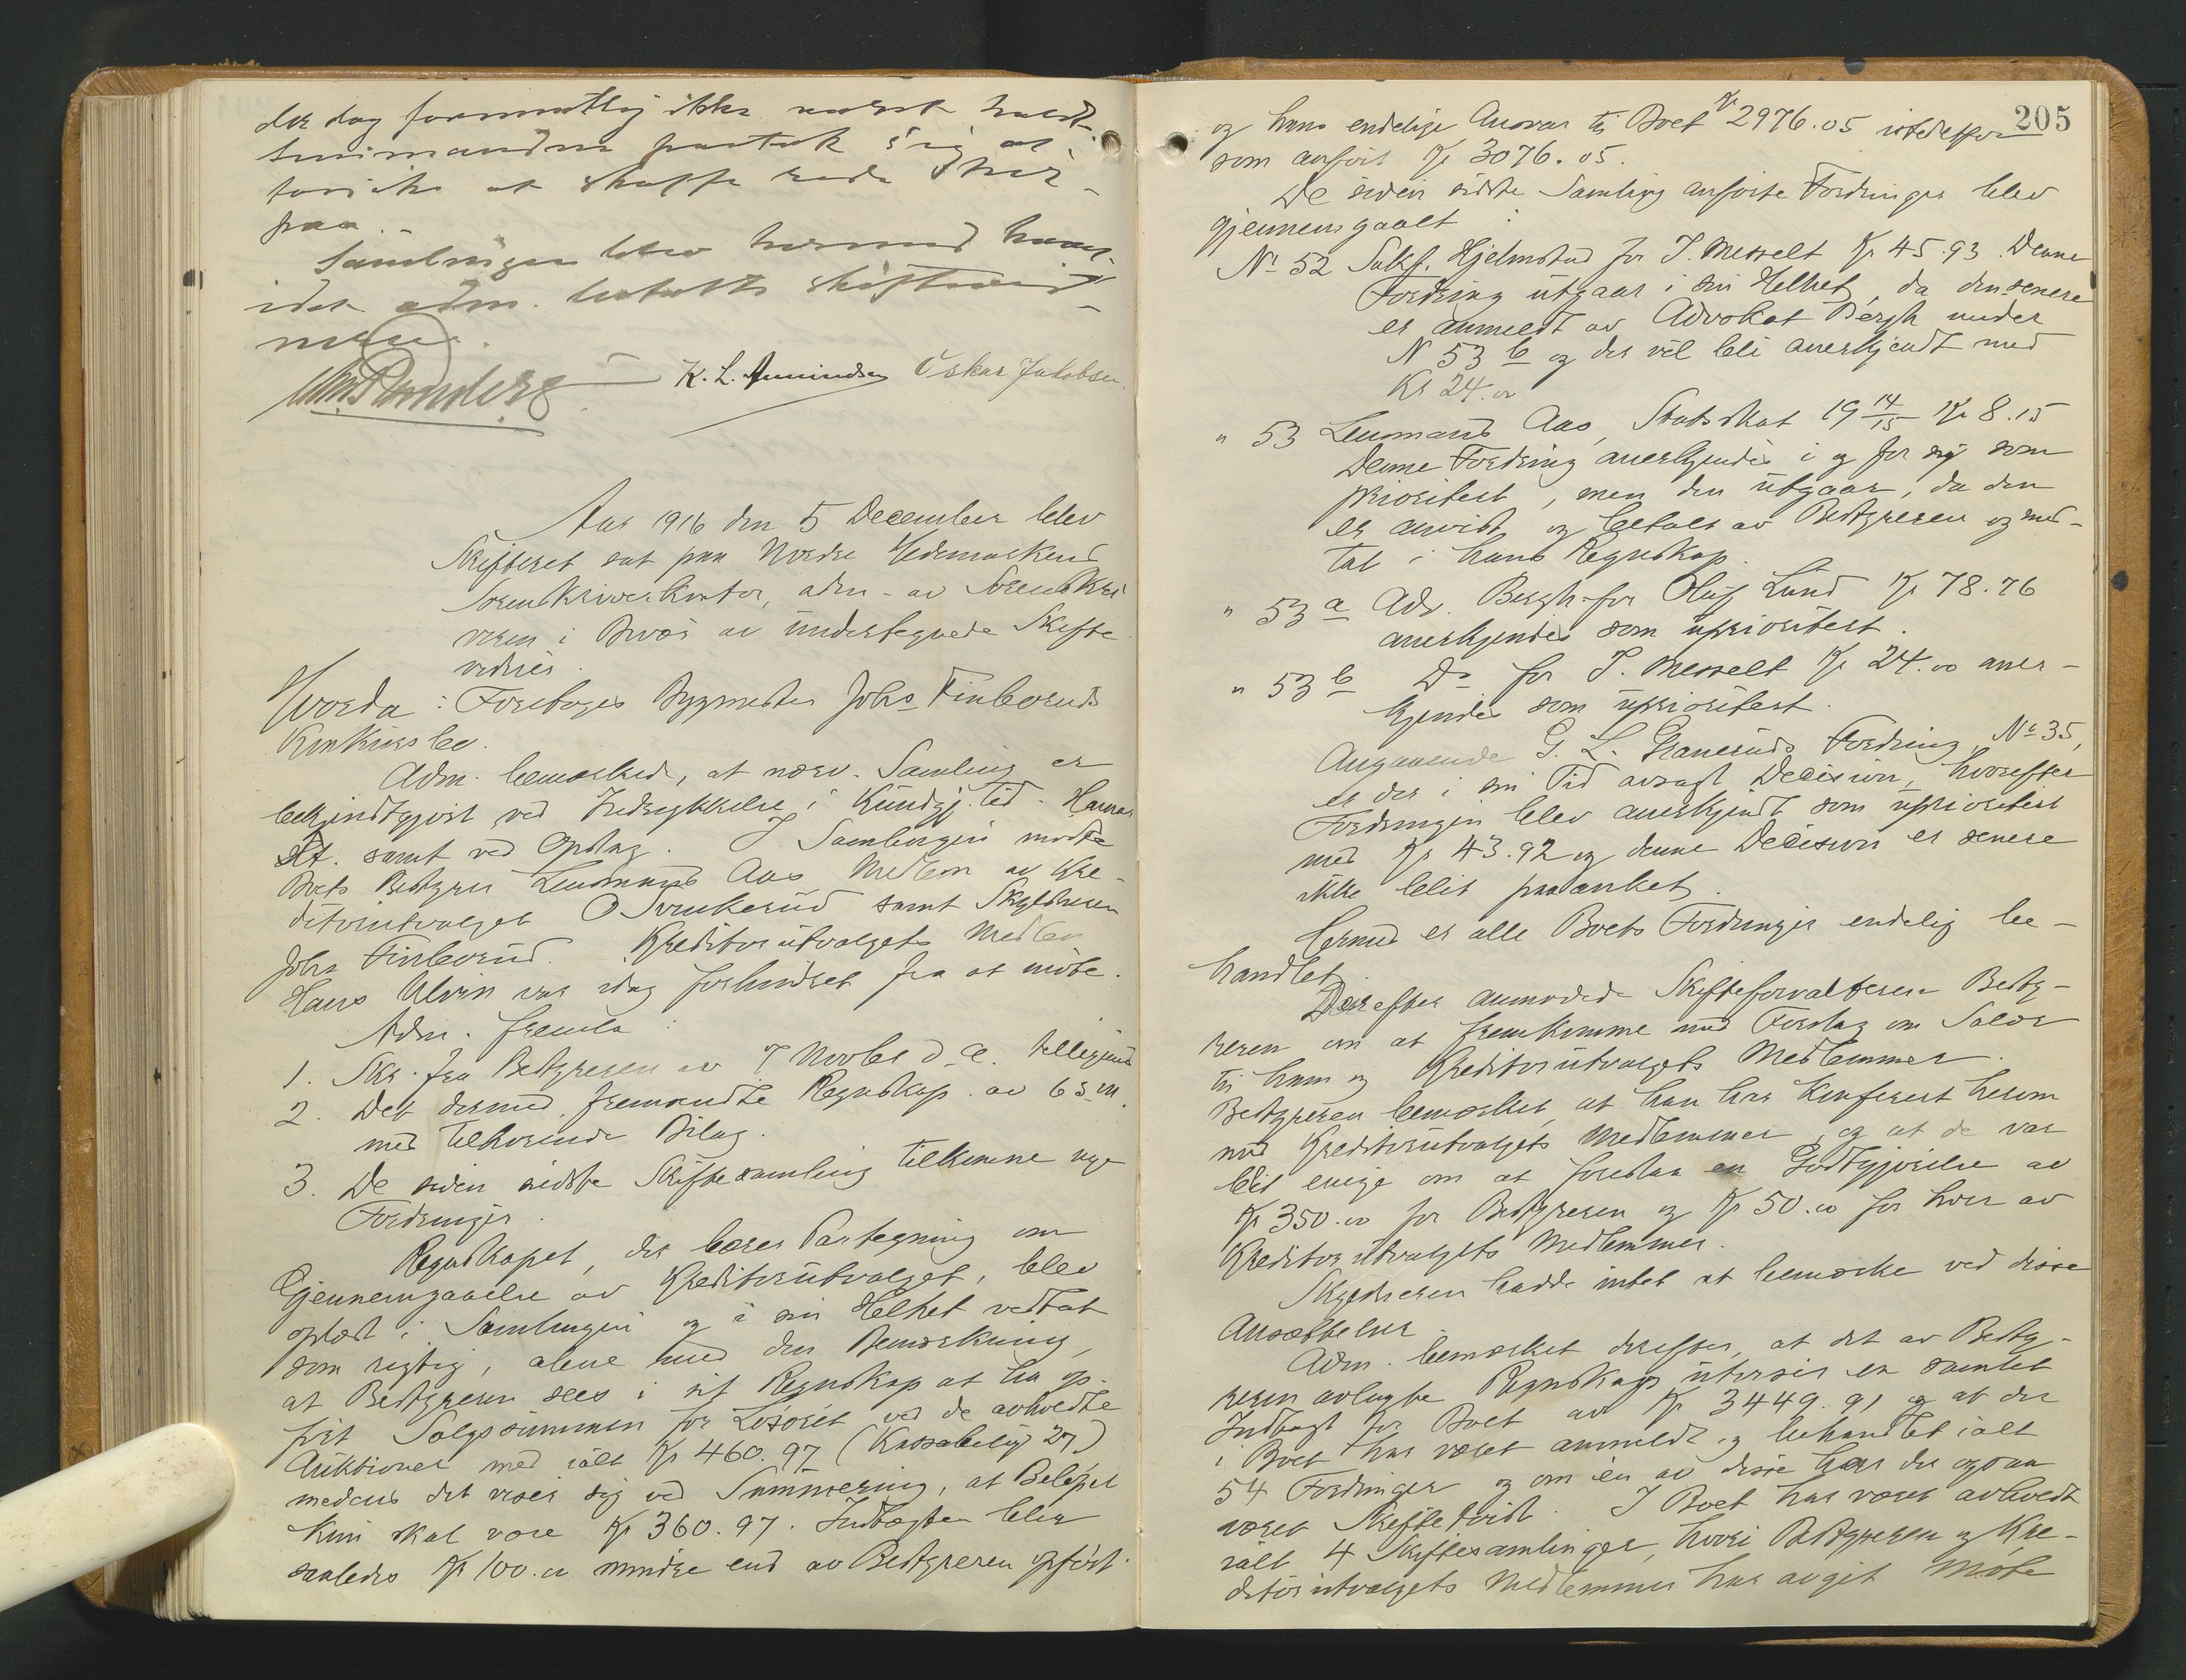 der dag formentlig ikke
paatok sig at
at skaffe rede paa
Samlingen blev hermed hævet
idet adm. betalte skiftevid-
nene.
K. L. Amundsen Oskar Jakobsen
Aar 1916 den 5 December blev
Skifteret sat paa Nordre Hedemarkens
Sorenskriverkontor, adm. av Sorenskri
veren i Overvær av undertegnede Skifte
vidner.
Hvorda: Foretoges Bygmester Johs Finborud's
Konkursbo.
Adm. bemerkede, at nærv. Samling er
bekjendtgjort ved Indrykkelse i Kundgj. tid. Hamar
Stt. samt ved Opslag. I Samlingen møtte
Boets Bestyrer Lensmand Aas Medlem av Kre-
ditorutvalget O Svenkerud samt Skyldneren
Johs Finborud. Kreditorutvalgets Medlem
Hans Alvin var idag forhindret fra at møte.
Adm. fremla:
1. Skr. fra Bestyreren av 7 Novbr d. A. tillikemed
2. Det dermed fremsendte Regnskap av 6 s. m.
med tilhørende Bilag.
3. De siden sidste Skiftesamling tilkomne nye
Fordringer.
Regnskapet, der bærer Paategning om
Gjennemgaaelse av Kreditorutvalget, blev
oplæst i Samlingen og i sin Helhet vedtat
som rigtig, alene med den Bemerkning,
at Bestyreren sees i sit Regnskap at ha op-
ført Salgssummen for Løsøret ved de avholdte
Auktioner med ialt Kr 460.97 (Kassabilag 27)
medens det viser sig ved Summering, at Beløpet
kun skal være Kr 360.97. Indtægten blir
saaledes Kr 100.00 mindre end av Bestyreren opført
205
og hans endelige Ansvar til Boet Kr 2976.05 istedetfor
som anført Kr 3076.05.
De siden sidste Samling anførte Fordringer blev
gjennemgaalt:
No 52 Sakf. Hjelmstad for J. Messelt Kr 45.93. Denne
Fordring utgaar i sin Helhet, da den senere
er anmeldt av Advokat Bergh under
N 53 b og der vil bli anerkjendt med
Kr 24.00
" 53 Lensmand Aas, Statsskat 19 14/15 Kr 8.15
Denne Fordring anerkjendes i og for sig som
prioritert, men den utgaar, da den
er anvist og betalt av Bestyreren og med-
tat i hans Regnskap.
" 53 a Adv. Bergh for Oluf Lund Kr 78.76
anerkjendes som uprioritert.
" 53 b Do for J. Messelt Kr 24.00 aner-
kjendes som uprioritert.
Angaaende G. L. Graneruds Fordring No 35,
er der i sin Tid avsagt Decision, hvorefter
Fordringen blev anerkjendt som uprioritert
med Kr 43.92 og denne Decision er senere
ikke blit paaanket.
Hermed er alle Boets Fordringer endelig be-
handlet.
Derefter anmodede Skifteforvalteren Besty-
reren om at fremkomme med Forslag om Salær
til ham og Kreditorutvalgets Medlemmer.
Bestyreren bemerket, at han har konferert herom
med Kreditorutvalgets Medlemmer, og at de var
blit enige om at foreslaa en Godtgjørelse av
Kr 350.00 for Bestyreren og Kr 50.00 for hver av
Kreditorutvalgets Medlemmer.
Skyldneren hadde intet at bemerke ved disse
Ansættelser.
Adm. bemerket derefter, at det av Besty-
reren avlagte Regnskap utviser en samlet
Indtægt for Boet av Kr 3449.91 og at der
i Boet har været anmeldt og behandlet ialt
54 Fordringer og om en av disse har der ogsaa
været Skiftetvist. I Boet har været avholdt
ialt 4 Skiftesamlinger, hvori Bestyreren og Kre-
ditorutvalgets Medlemmer har avgit Møte